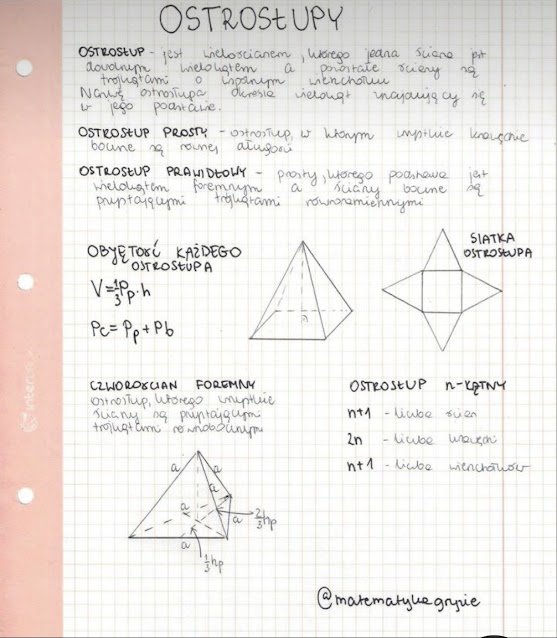 OSTROSŁUPY
OSTROSŁUP - jest wielościanem, którego jedna ściana jest
dowolnym wielokątem a pozostałe ściany są
trójkątami o wspólnym wierzchołku
Nazwę ostrosłupa określa wielokąt znajdujący się
w jego podstawie.
OSTROSŁUP PROSTY - ostrosłup, w którym wszystkie krawędzie
boczne są równej długości
OSTROSŁUP PRAWIDŁOWY - prosty, którego podstawa jest
wielokątem foremnym a ściany boczne są
przystającymi trójkątami równoramiennymi
OBJĘTOŚĆ KAŻDEGO
OSTROSŁUPA
V=1/3Pp·h
Pc= Pp+Pb
SIATKA
OSTROSŁUPA
CZWOROŚCIAN FOREMNY
ostrosłup, którego wszystkie
ściany są przystającymi
trójkątami równobocznymi
a
a
a
a
a
a
2/3hp
1/3hp
OSTROSŁUP n-KĄTNY
n+1 - liczba ścian
2n - liczba krawędzi
n+1 - liczba wierzchołków
interdruk
@matematykagryzie